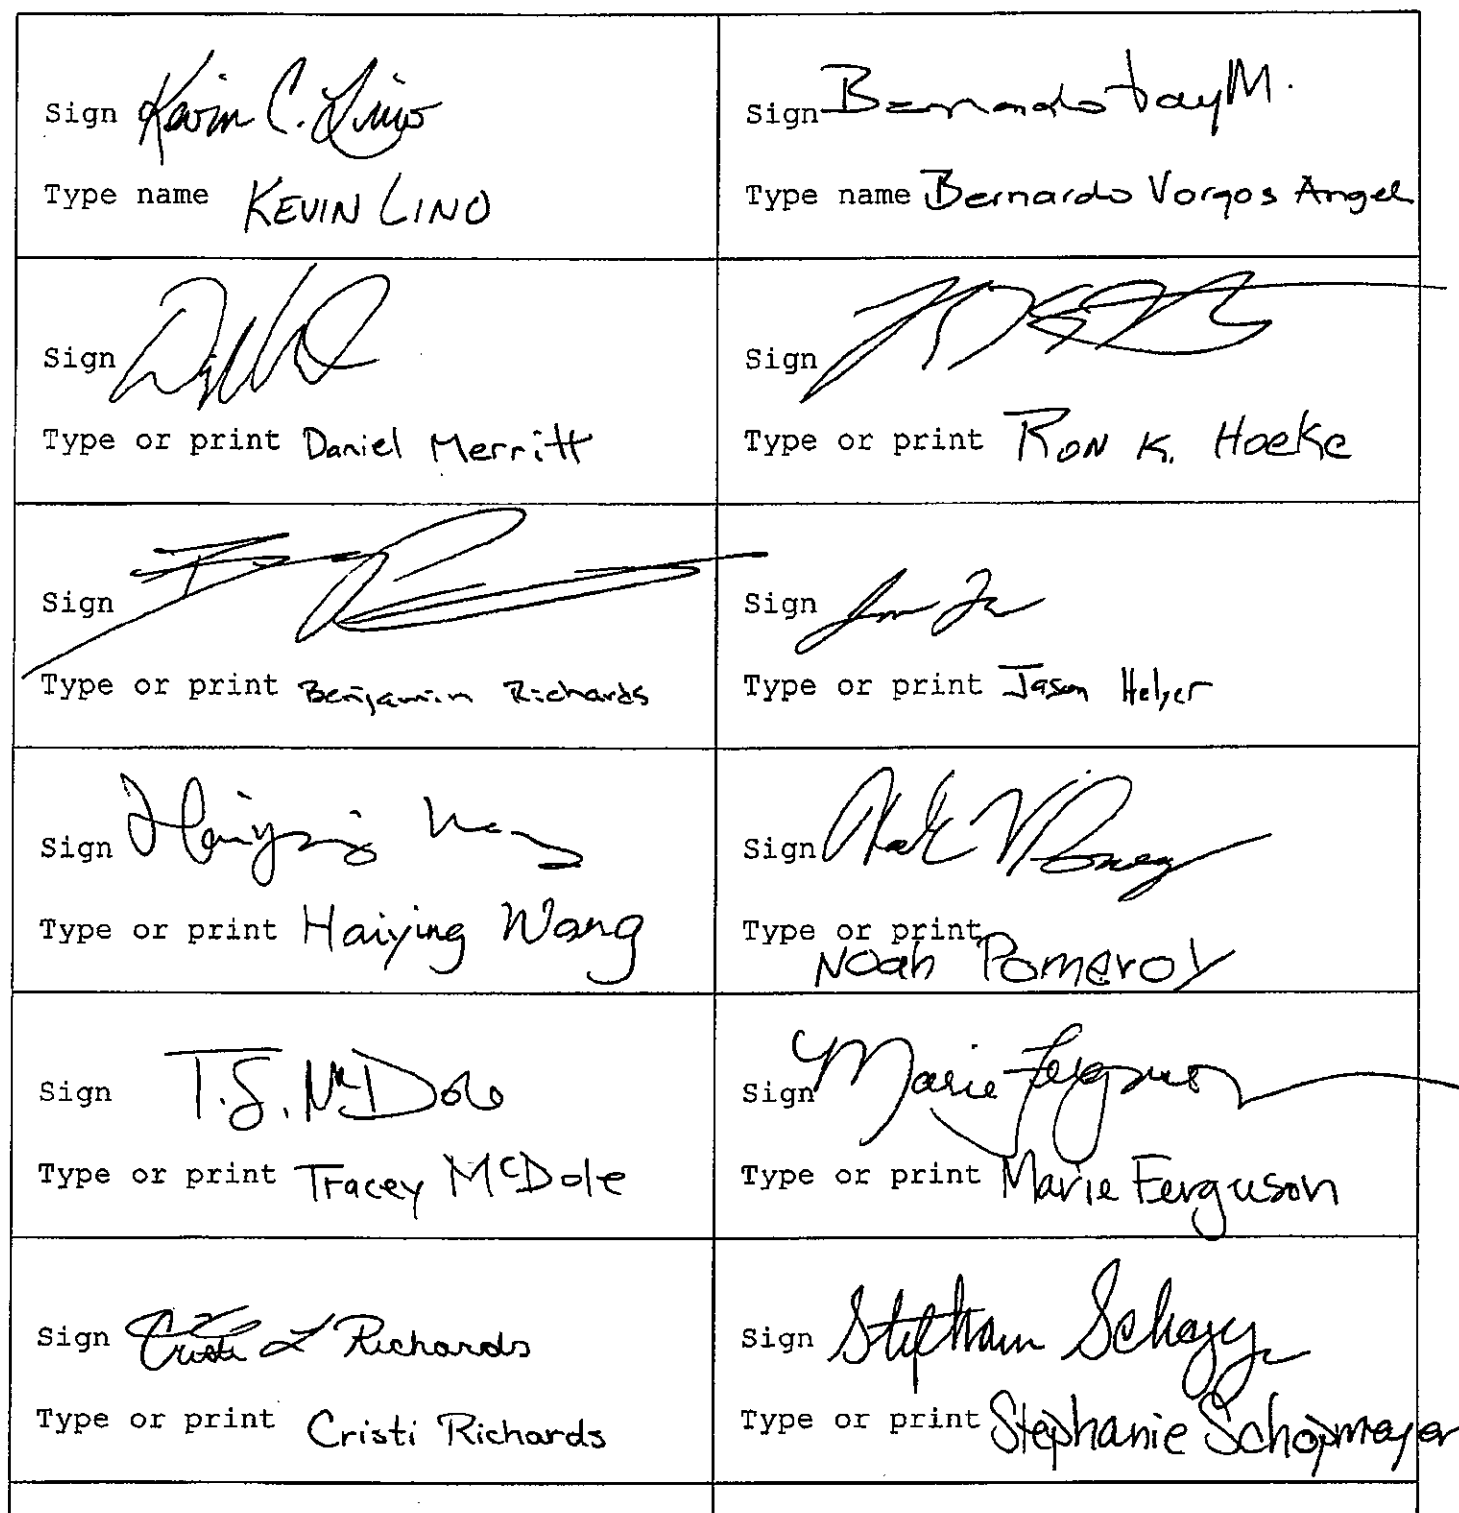 Sign Kevin C. Lino
Type name KEVIN LINO
Sign Bernardo M.
Type name Bernardo Vargas Angel
Sign
Type or print Daniel Merritt
Sign
Type or print RON K. Hoeke
Sign
Type or print Benjamin Richards
Sign
Type or print Jason Helyer
Sign Haiying Wang
Type or print Haiying Wang
Sign
Type or print
Noah Pomeroy
Sign T.S. McDole
Type or print Tracey McDole
Sign Marie Ferguson
Type or print Marie Ferguson
Sign Cristi L Richards
Type or print Cristi Richards
Sign
Type or print Stephanie Schopmeyer